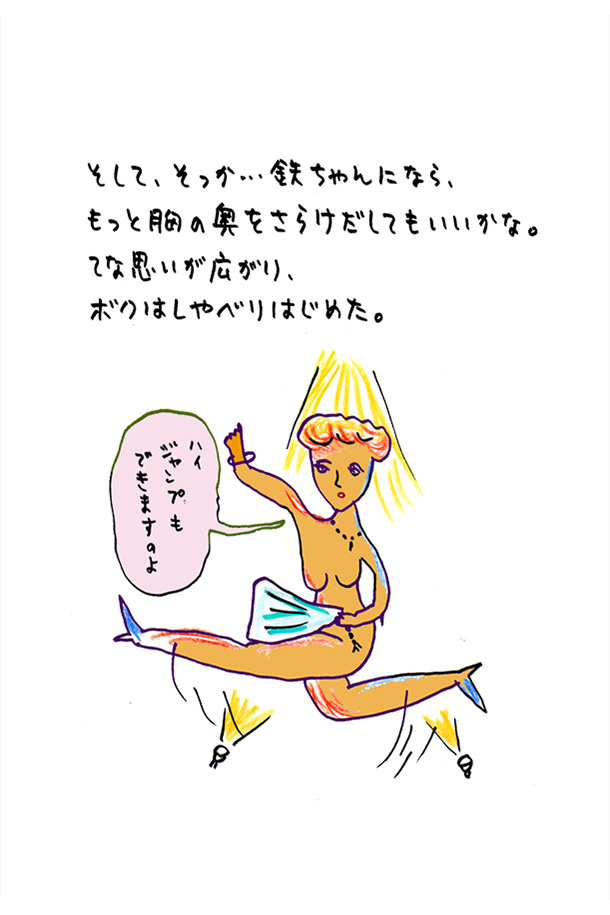 そして、そっか…鉄ちゃんになら、
もっと胸の奥をさらけだしてもいいかな。
てな思いが広がり、
ボクはしゃべりはじめた。
ハイ
ジャンプも
できますのよ